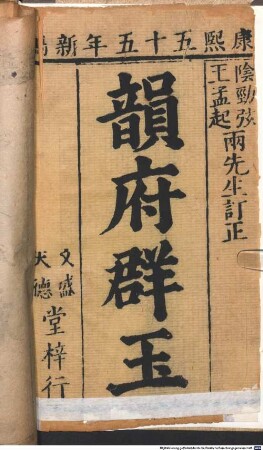 康熙五十五年新鐫
陰勁弦
王孟起
兩先生訂正
韻府群玉
文盛
天德
堂梓行